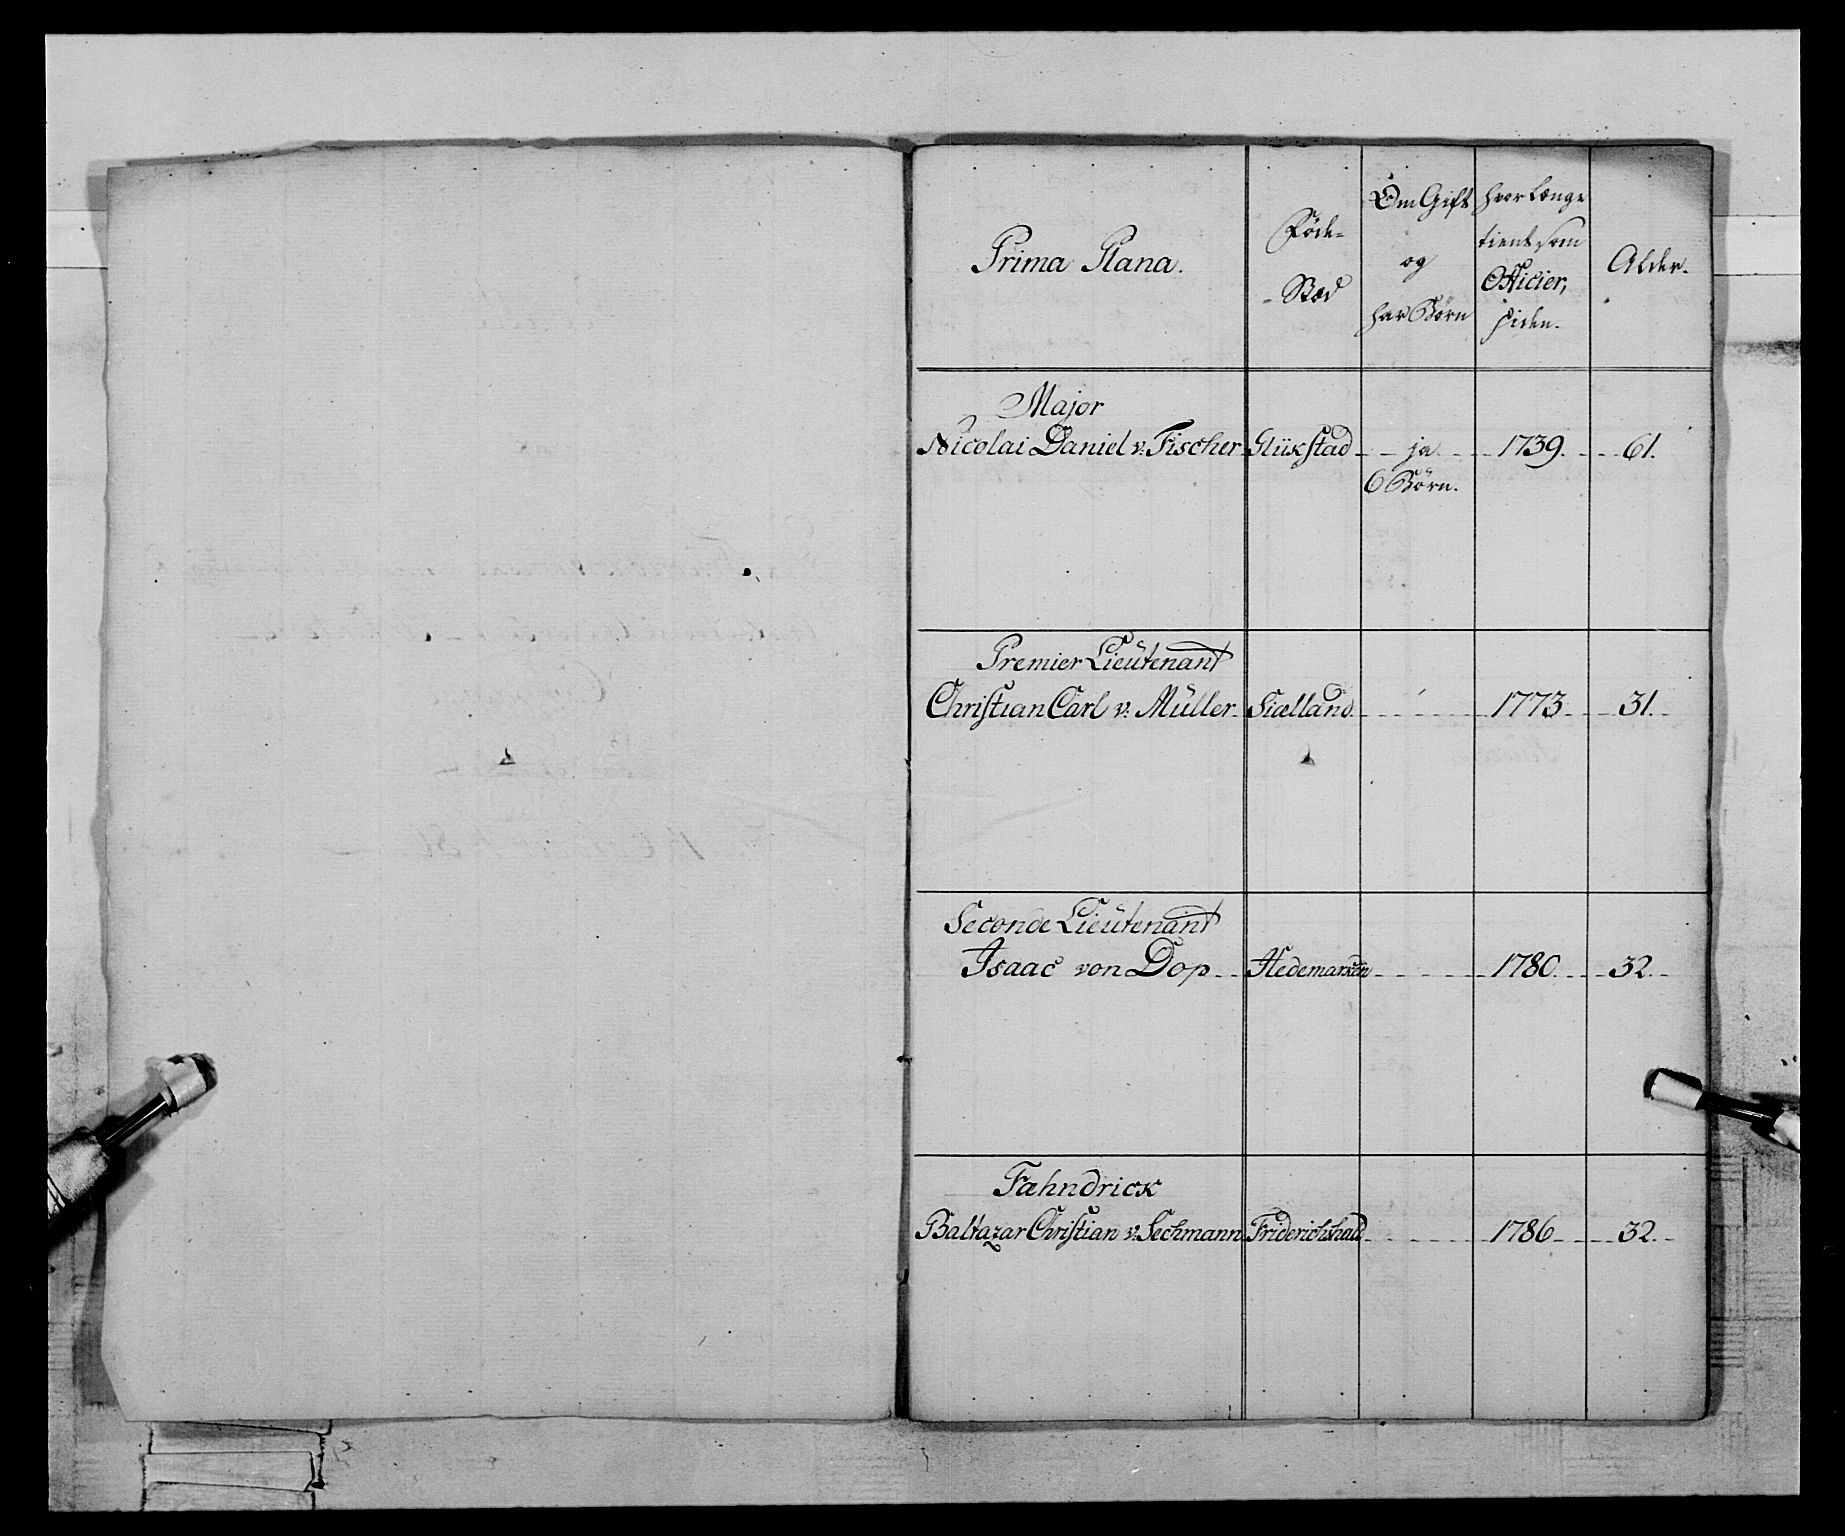 Prima Plana.
Føde-
-Stæd
Om Gift
og
har Børn
hvor længe
tient som
Officier,
siden.
Alder.
Major
Nicolai Daniel v: Fischer Glükstad ja. 1739. 61.
6 Børn.
Premier Lieutenant
Christian Carl v: Müller Siælland. 1773 31.
Seconde Lieutenant
Isaac von Dop Hedemarken 1780. 32.
Fæhndrick
Baltazar Christian v: Sechmann Friderichshald 1786 32.